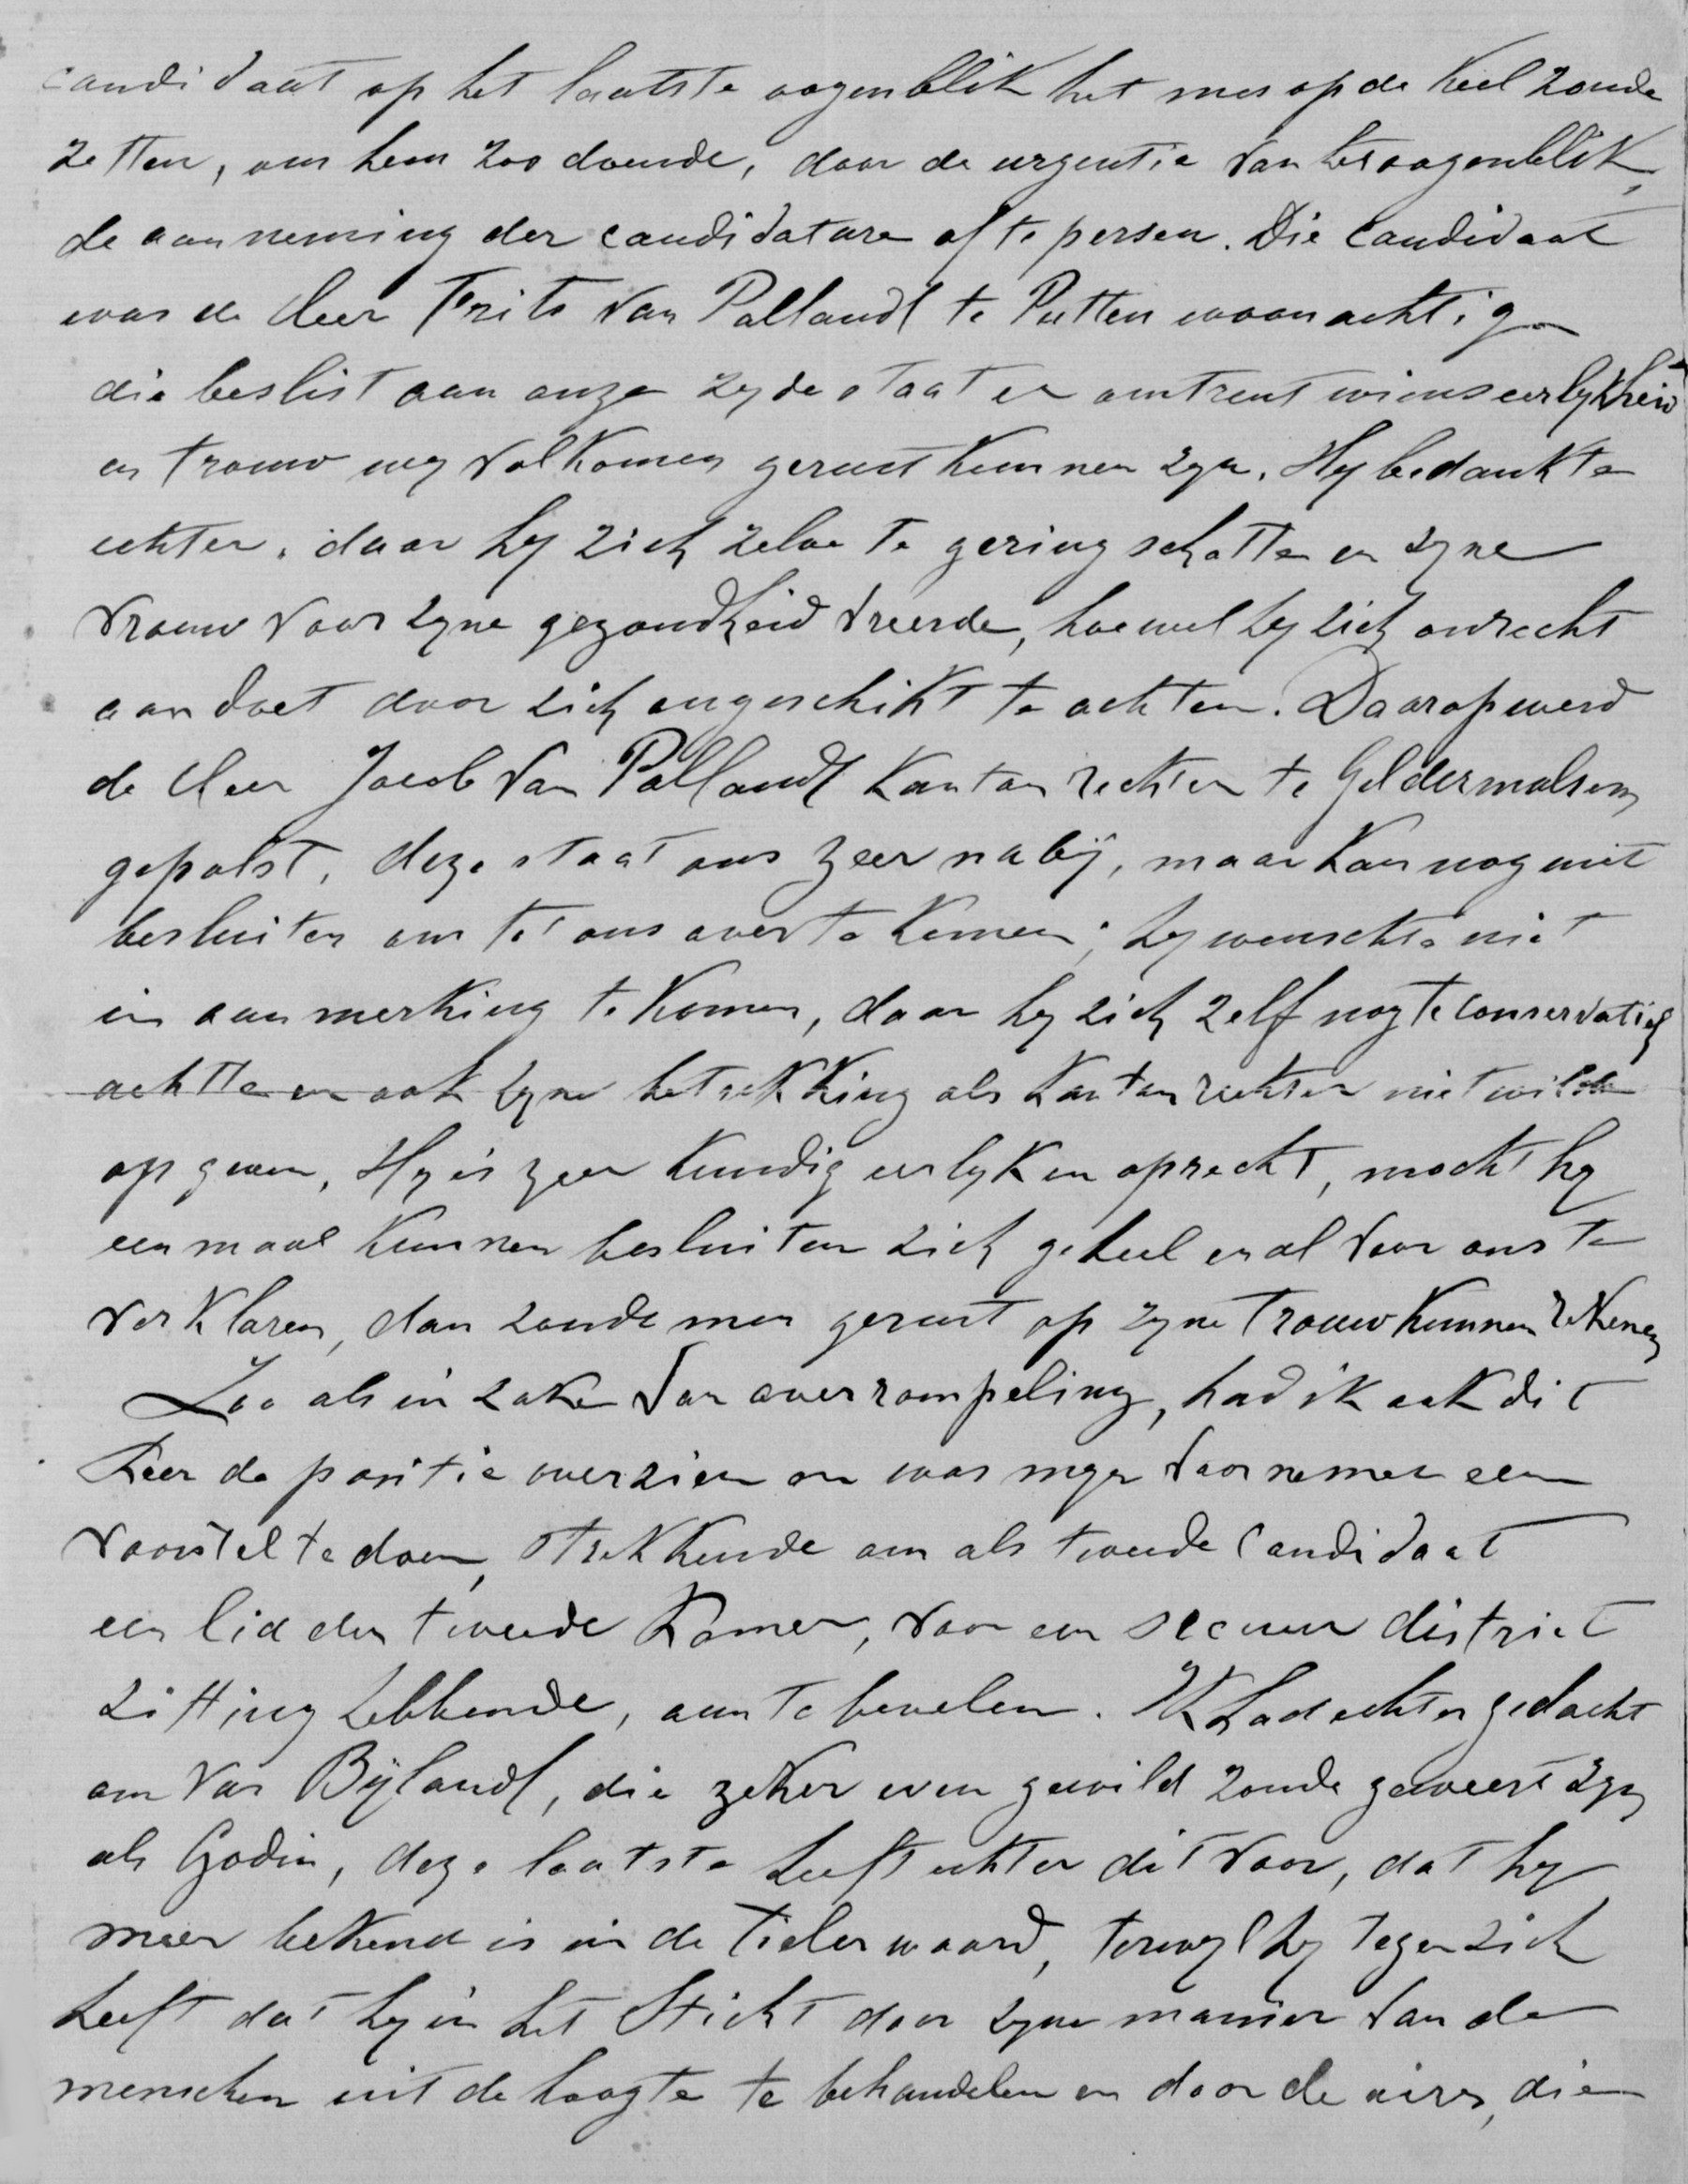 candidaat op het laatste oogenblik het mes op de keel zoude
zetten, om hem zoodoende, door de urgentie van het oogenblik,
de aanneming der candidature af te persen. Die candidaat
was de Heer Frits van Pallandt te Putten woonachtig
die beslist aan onze zyde staat en omtrent wiens eerlykheid
en trouw wy volkomen gerust kunnen zyn. Hy bedankte
echter, daar hy zich zelve te gering schatte en zyne
vrouw voor zyne gezondheid vreesde, hoewel hy zich onrecht
aandoet door zich ongeschikt te achten. Daarop werd
de Heer Jacob van Pallandt Kantonrechter te Geldermalsen
gepolst, deze staat ons zeer nabij, maar kan nog niet
besluiten om tot ons over te komen; hy wenschte niet
in aanmerking te komen, daar hy zich zelf nog te conservatief
achtte en ook zyne betrekking als Kantonrechter niet wilde
opgeven, Hy is zeer kundig eerlyk en oprecht, mocht hy
eenmaal kunnen besluiten zich geheel en al voor ons te
verklaren, dan zoude men gerust op zyne trouw kunnen rekenen
Zoo als in zake van overrompeling, had ik ook dit
keer de positie overzien en was myn voornemen een
voorstel te doen, strekkende om als tweede candidaat
een lid der tweede Kamer, voor een secuur district
zitting hebbende, aan te bevelen. Ik had echter gedacht
om van Bijlandt, die zeker even gewild zoude geweest zyn
als Godin, deze laatste heeft echter dit voor, dat hy
meer bekend is in de Tielerwaard, terwyl hy tegen zich
heeft dat hy in het Sticht door zyne manier van de
menschen uit de hoogte te behandelen en door de airs, die